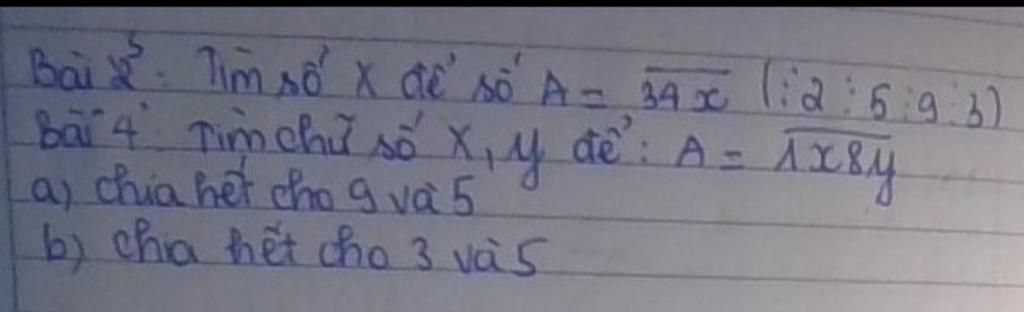 Bài 3: Tìm số x để số A = 34x (:2:5:9:3)
Bài 4: Tìm chữ số x, y để: A = 1x8y
a) chia hết cho 9 và 5
b) chia hết cho 3 và 5